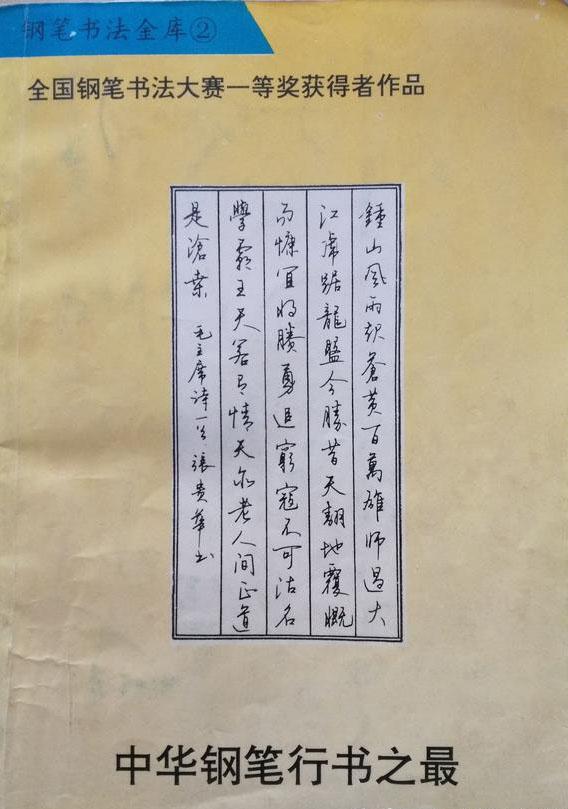 钢笔书法金库②
全国钢笔书法大赛一等奖获得者作品
鍾山风雨起蒼黄百萬雄师過大
江虎踞龍盤今勝昔天翻地覆慨
而慷宜将賸勇追窮寇不可沽名
學霸王天若有情天亦老人间正道
是滄桑 毛主席诗一首 張贵華书
中华钢笔行书之最